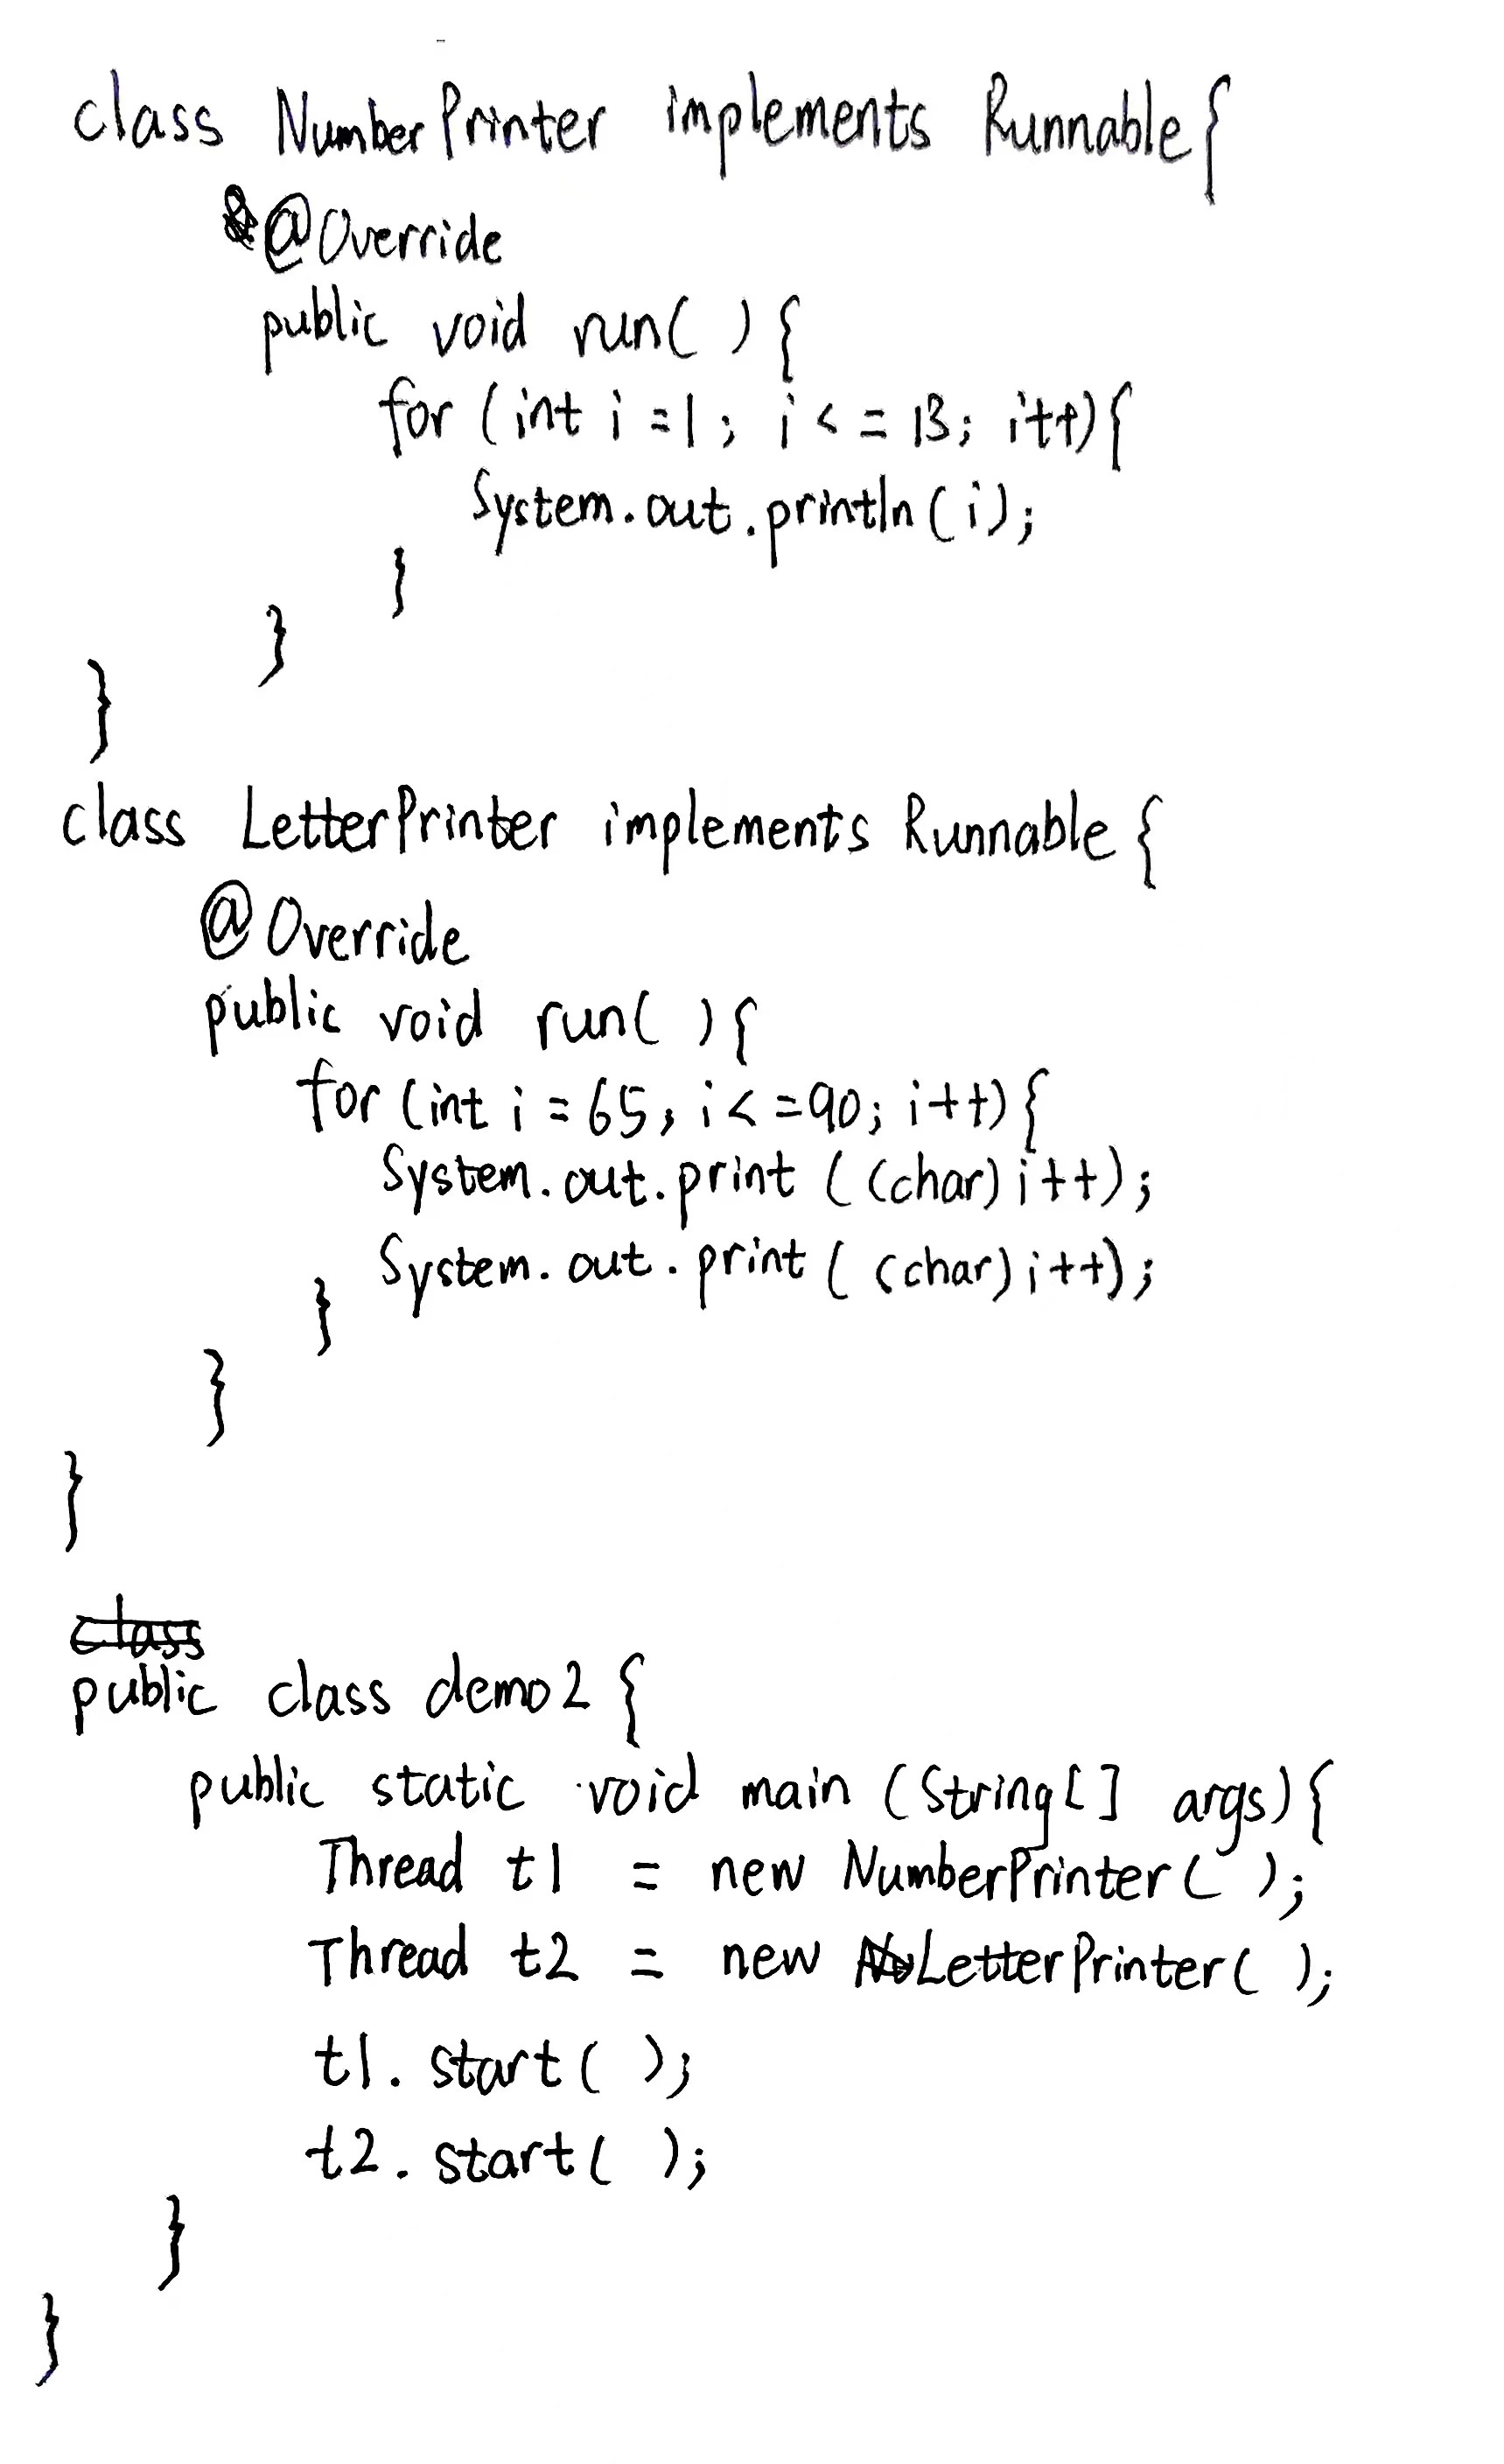 class NumberPrinter implements Runnable{
@Override
public void run( ){
for (int i =1; i <= 13; i++){
System.out.println(i);
}
}
}
class LetterPrinter implements Runnable{
@Override
public void run( ){
for (int i = 65, i <=90; i++){
System.out.print ( (char) i++);
System.out.print ( (char) i++);
}
}
}
class
public class demo2 {
public static void main (String[] args){
Thread t1 = new NumberPrinter( );
Thread t2 = new LetterPrinter( );
t1. start( );
t2. start( );
}
}